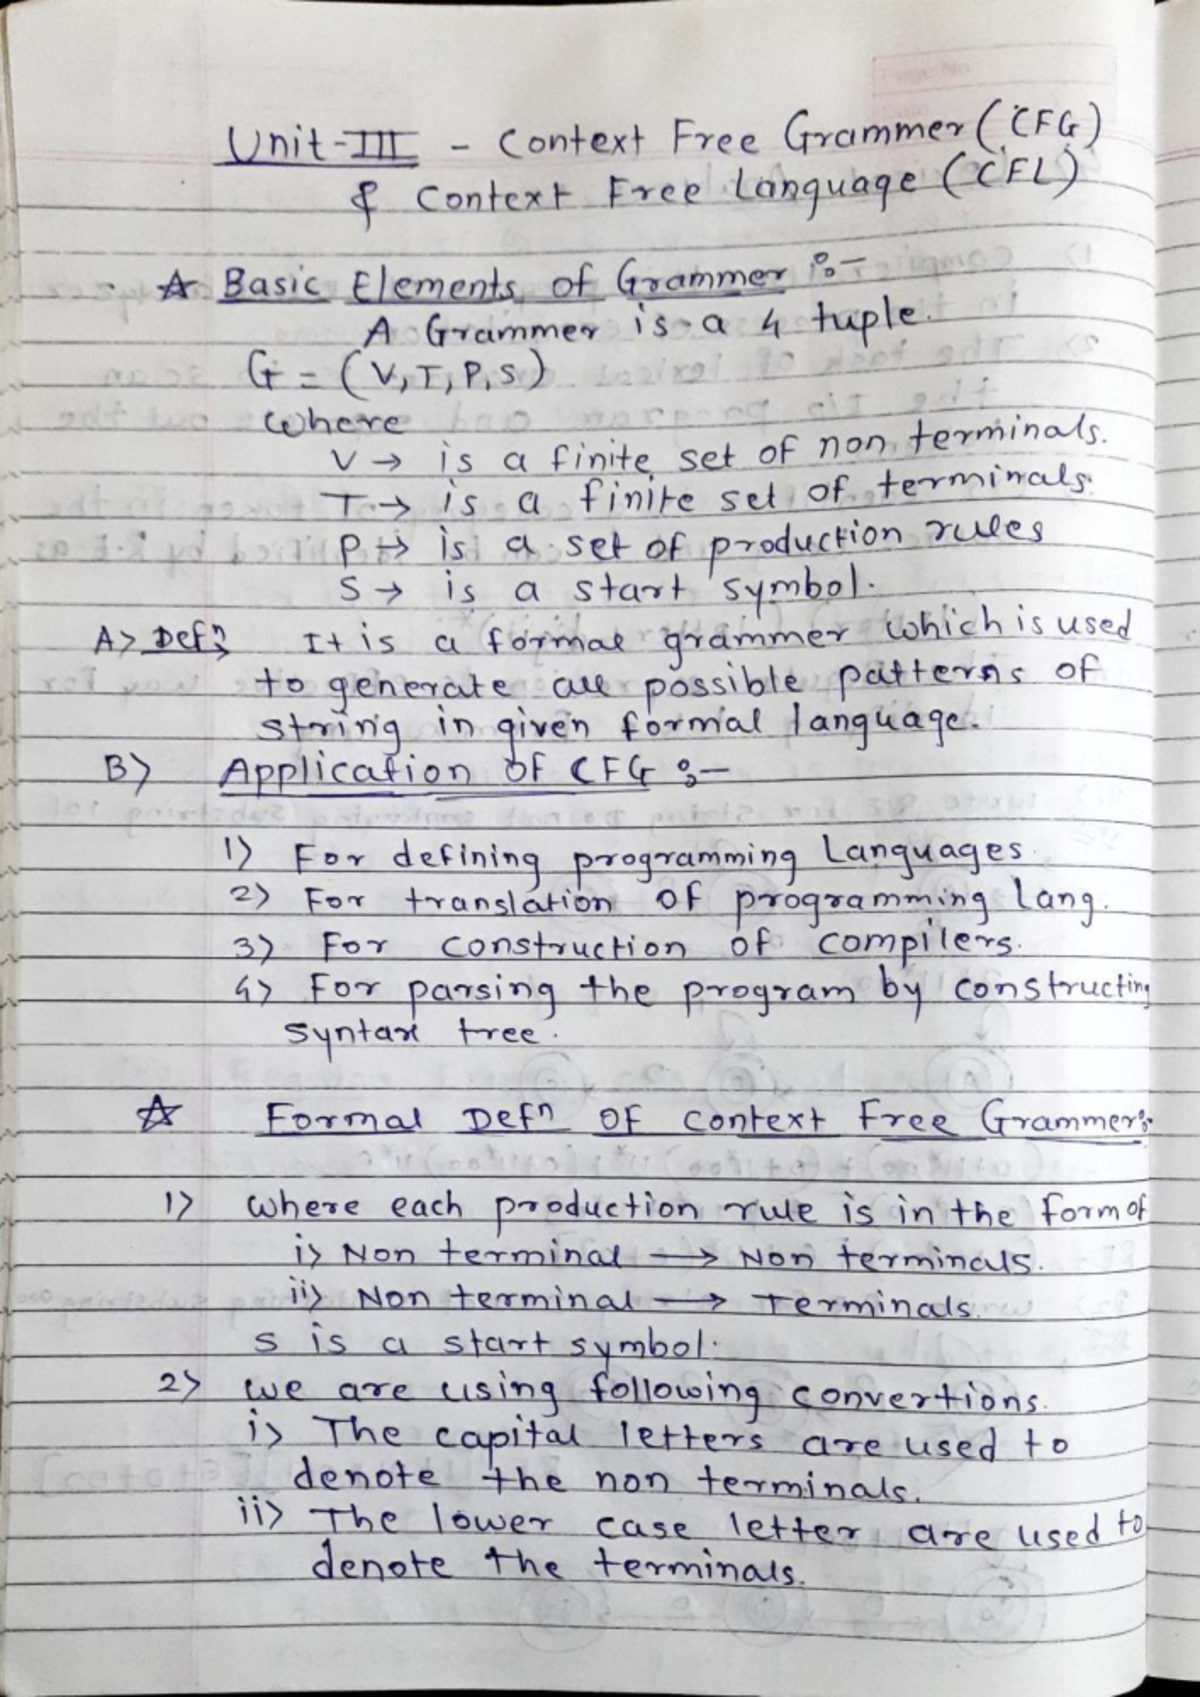 Page No
Unit-III - Context Free Grammer (CFG)
& Context Free Language (CFL)
☆ Basic Elements of Grammer :-
A Grammer is a 4 tuple.
G = (V, T, P, S)
where
V → is a finite set of non terminals.
T → is a finite set of terminals.
P → is a set of production rules
S → is a start symbol.
A> Defn It is a formal grammer which is used
to generate all possible patterns of
string in given formal language.
B> Application of CFG :-
1> For defining programming Languages.
2> For translation of programming lang.
3> For construction of compilers.
4> For parsing the program by constructing
syntax tree.
☆ Formal Defn OF Context Free Grammer:
1> where each production rule is in the form of
i> Non terminal → Non terminals.
ii> Non terminal → Terminals.
S is a start symbol.
2> we are using following convertions.
i> The capital letters are used to
denote the non terminals.
ii> The lower case letter are used to
denote the terminals.